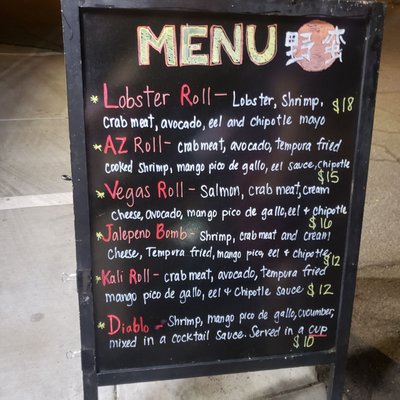 MENU 野蛮
* Lobster Roll - Lobster, Shrimp, $18
crab meat, avocado, eel and chipotle mayo
* AZ Roll - crab meat, avocado, tempura fried
cooked shrimp, mango pico de gallo, eel sauce, chipotle
$15
* Vegas Roll - Salmon, crab meat, cream
cheese, avocado, mango pico de gallo, eel & chipotle
$16
* Jalepeno Bomb - Shrimp, crab meat and cream
cheese, Tempura fried, mango pico, eel & chipotle
$12
* Kali Roll - crab meat, avocado, tempura fried
mango pico de gallo, eel & Chipotle sauce $12
* Diablo - Shrimp, mango pico de gallo, cucumber,
mixed in a cocktail sauce. Served in a cup
$10